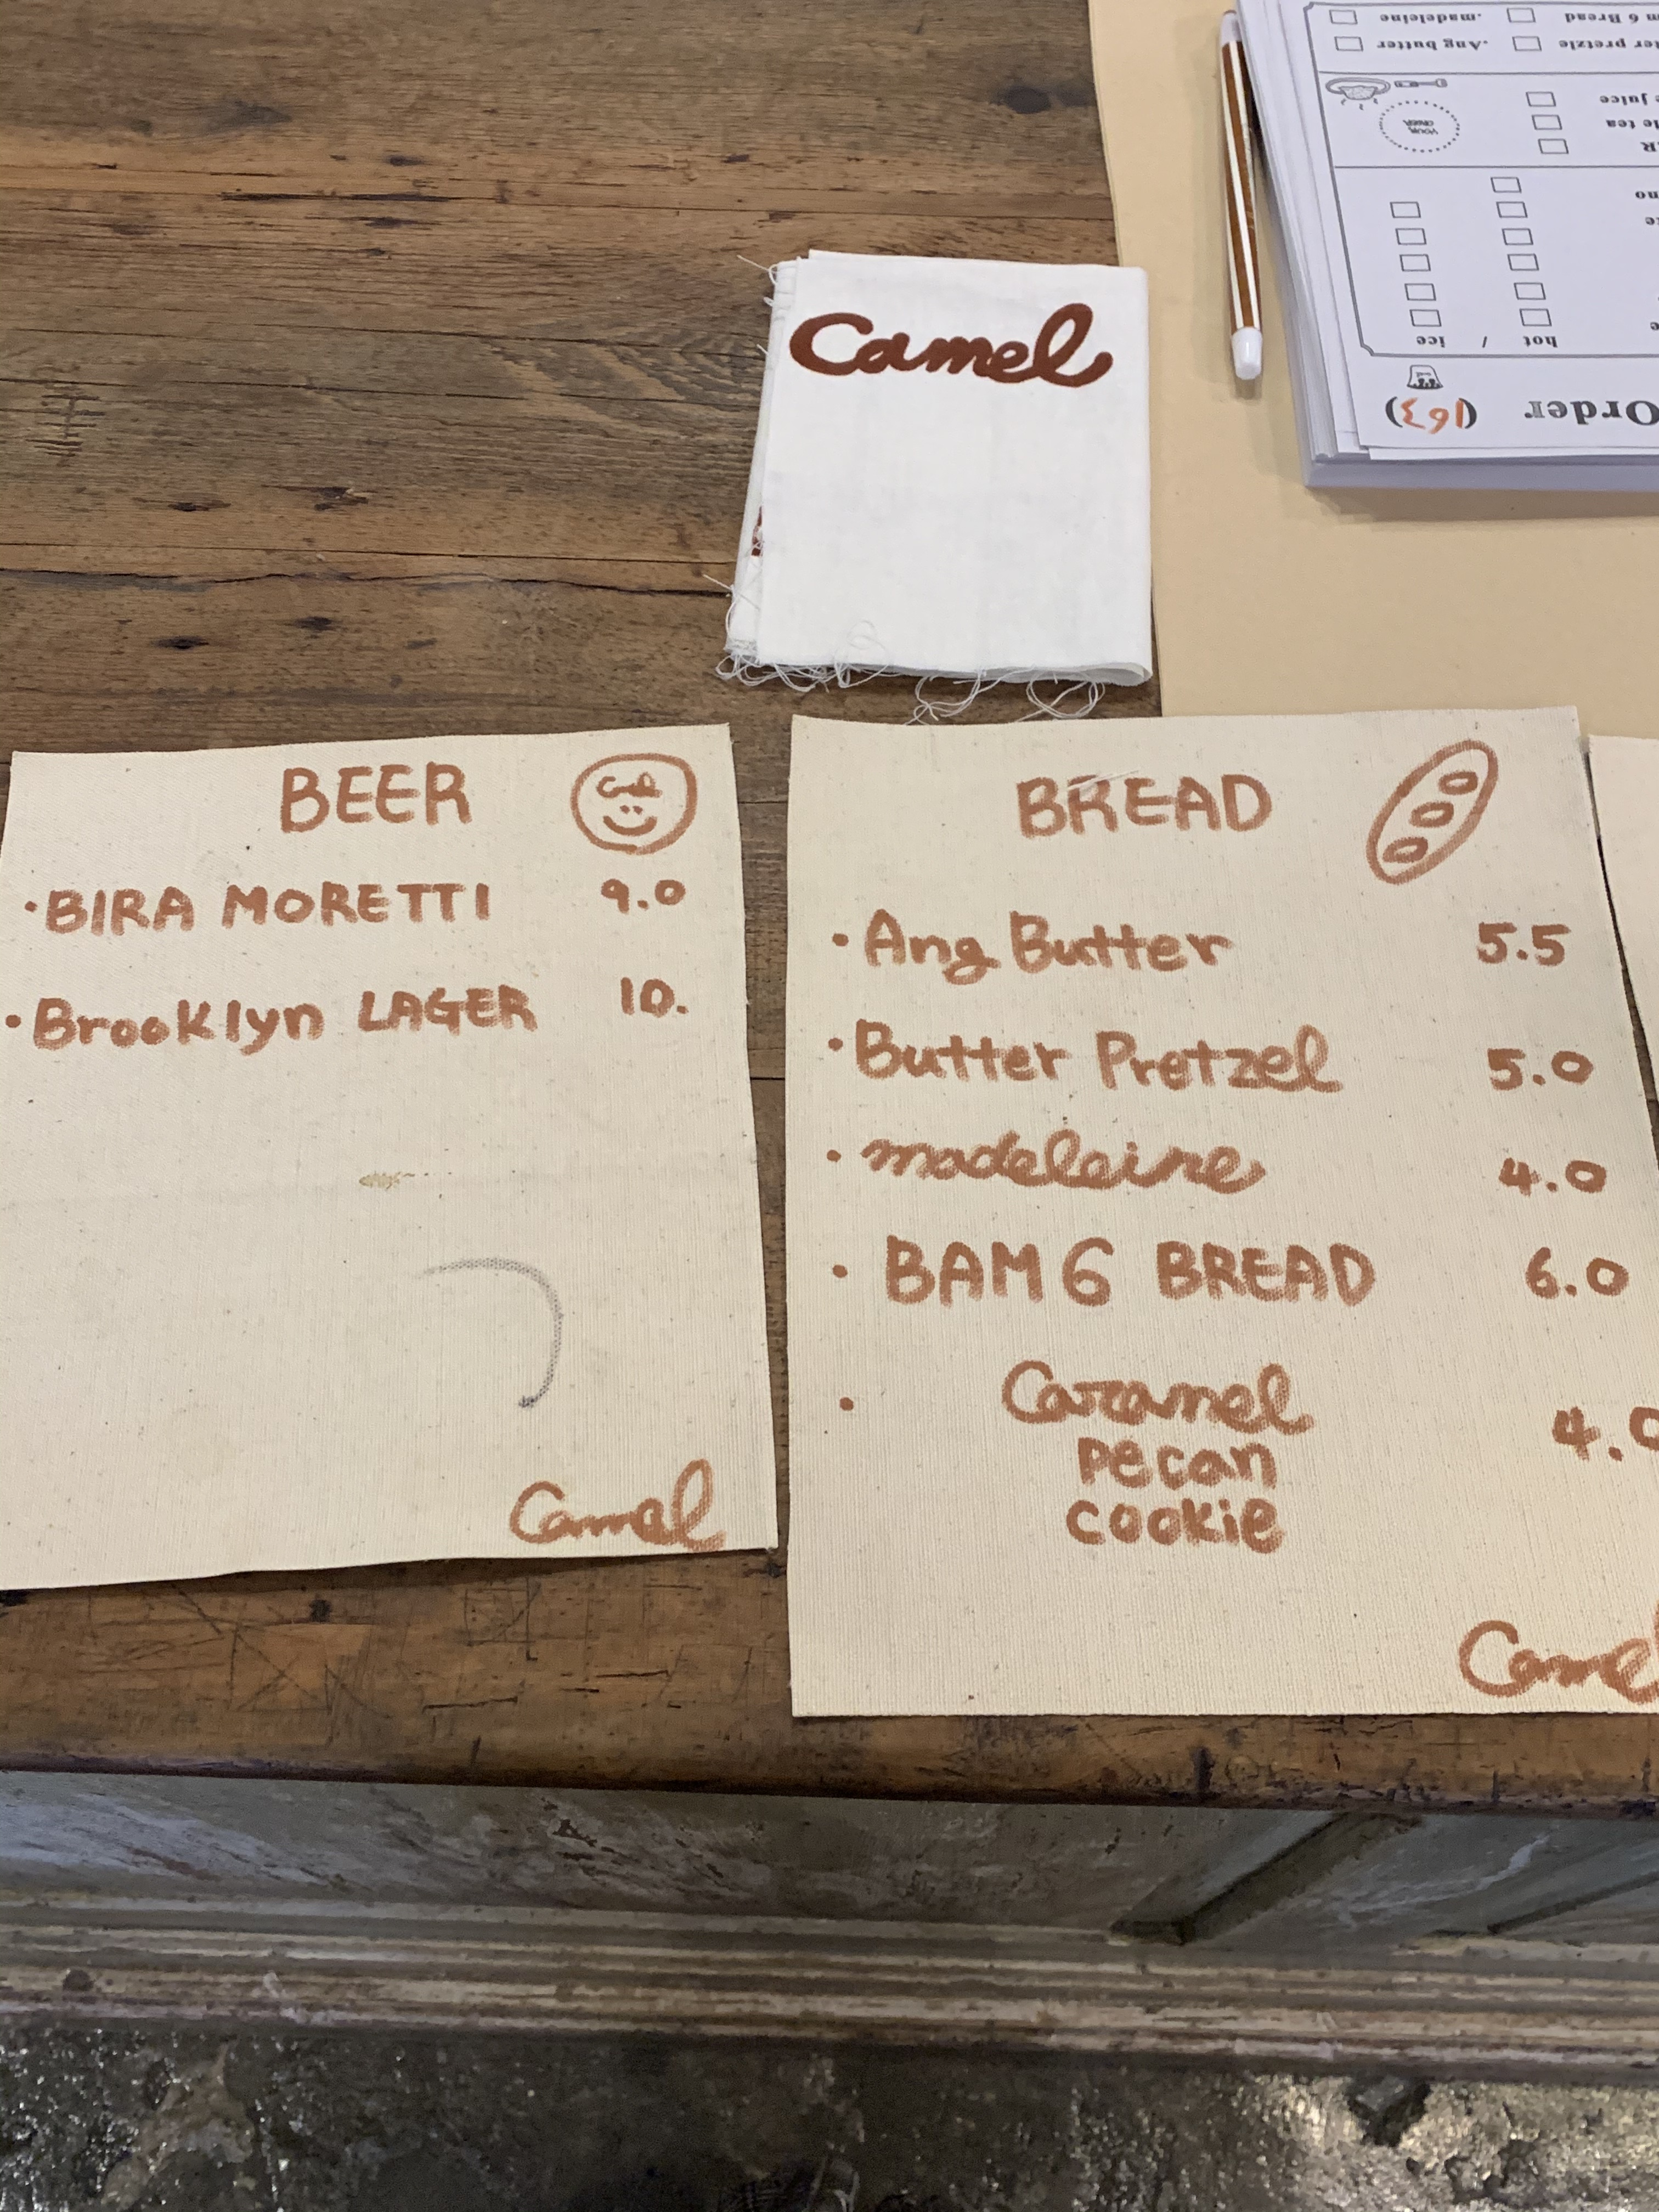 .madeleine
n 6 Bread
.Ang butter
er pretzle
e juice
le tea
R
no
te
e
ice / hot
Order (163)
Camel
BEER
•BIRA MORETTI 9.0
•Brooklyn LAGER 10.
Camel
BREAD
•Ang Butter 5.5
•Butter Pretzel 5.0
•madeleine 4.0
•BAM 6 BREAD 6.0
•Caramel 4.0
pecan
cookie
Camel